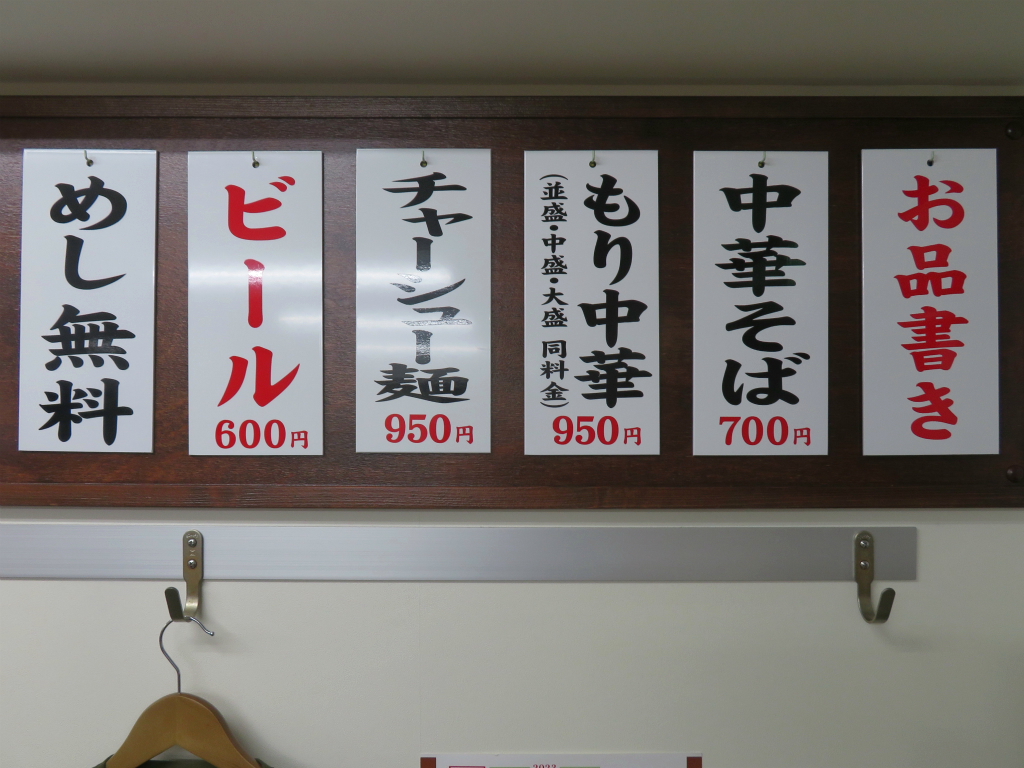 お品書き
中華そば
700円
もり中華
(並盛・中盛・大盛 同料金)
950円
チャーシュー麺
950円
ビール
600円
めし無料
2023